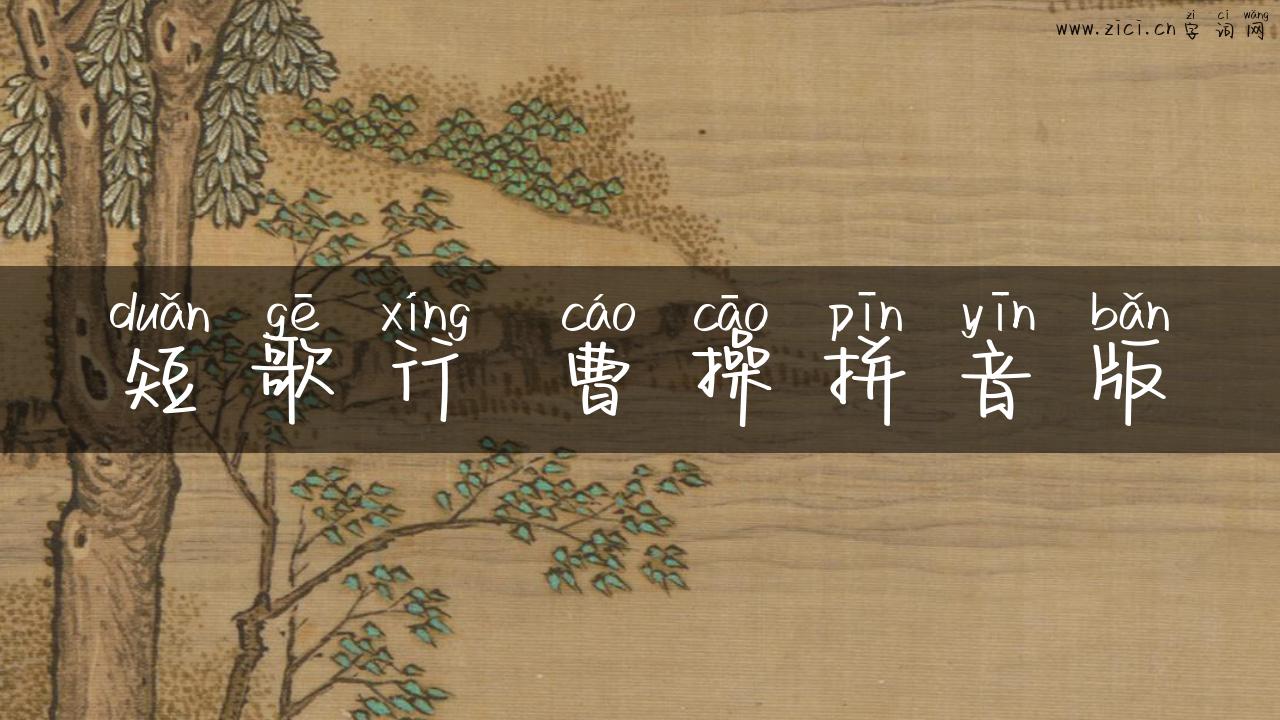 zì cí wǎng
www.zici.cn 字词网
duǎn gē xíng cáo cāo pīn yīn bǎn
短歌行 曹操拼音版